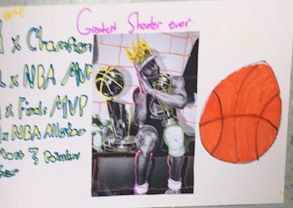 Greatest Shooter ever
x Champion
x NBA MVP
x Finals MVP
x NBA Allstar
Most 3 Pointer
ever